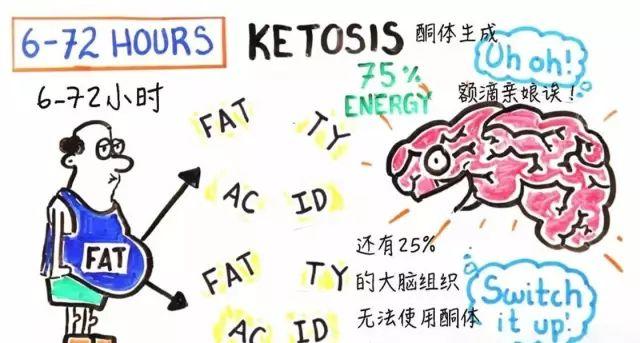 6-72 HOURS
KETOSIS
酮体生成
Uh oh!
6-72小时
75%
ENERGY
额滴亲娘诶！
FAT TY
AC ID
FAT
FAT TY
AC ID
还有25%
的大脑组织
无法使用酮体
Switch
it up!